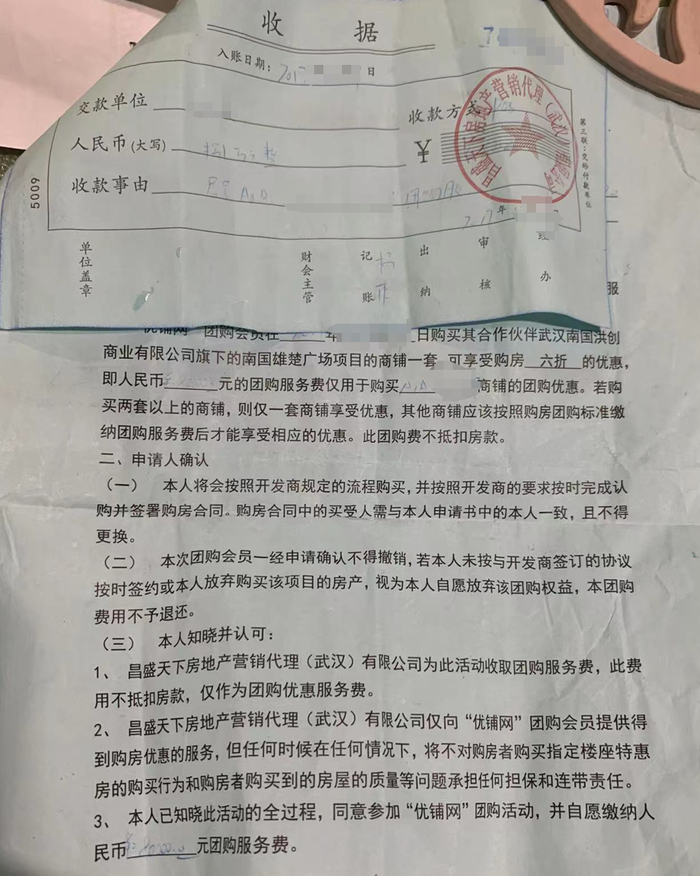 收 据
入账日期: 2017 日
交款单位 收款方式
人民币(大写) ¥
收款事由
昌盛天下房地产营销代理(武汉)
第三联:交给付款单位
5009
2017年
单位盖章 财会主管 记账 出纳 审核 经办
服
优铺网” 团购会员在 年 日购买其合作伙伴武汉南国洪创
商业有限公司旗下的南国雄楚广场项目的商铺一套 可享受购房 六折 的优惠,
即人民币 元的团购服务费仅用于购买 商铺的团购优惠。若购
买两套以上的商铺,则仅一套商铺享受优惠,其他商铺应该按照购房团购标准缴
纳团购服务费后才能享受相应的优惠。此团购费不抵扣房款。
二、申请人确认
(一) 本人将会按照开发商规定的流程购买,并按照开发商的要求按时完成认
购并签署购房合同。购房合同中的买受人需与本人申请书中的本人一致,且不得
更换。
(二) 本次团购会员一经申请确认不得撤销,若本人未按与开发商签订的协议
按时签约或本人放弃购买该项目的房产,视为本人自愿放弃该团购权益,本团购
费用不予退还。
(三) 本人知晓并认可:
1、 昌盛天下房地产营销代理(武汉)有限公司为此活动收取团购服务费,此费
用不抵扣房款,仅作为团购优惠服务费。
2、 昌盛天下房地产营销代理(武汉)有限公司仅向“优铺网”团购会员提供得
到购房优惠的服务,但任何时候在任何情况下,将不对购房者购买指定楼座特惠
房的购买行为和购房者购买到的房屋的质量等问题承担任何担保和连带责任。
3、 本人已知晓此活动的全过程,同意参加“优铺网”团购活动,并自愿缴纳人
民币 元团购服务费。